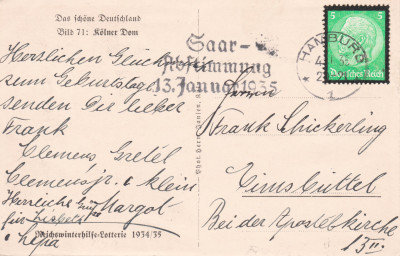 Das schöne Deutschland
Bild 71: Kölner Dom
Herzlichen Glück
zum Geburtstage
senden Dir lieber
Frank
Clemens Gretel
Clemens jr. & klein
Margot
Herzliche
für
Reichswinterhilfe-Lotterie 1934/35
Saar-
Abstimmung
13. Januar 1935
HAMBURG
1
5 5
Deutsches Reich
Herrn
Frank Schickerling
Eimsbüttel
Bei der Apostelkirche
13 II.